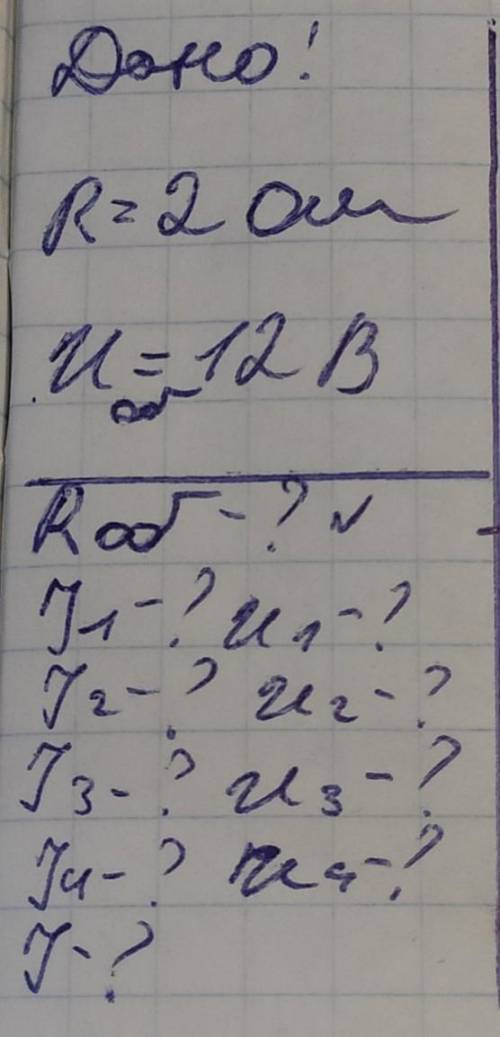 Дано!
R = 2 Ом
U об = 12 В
R об - ? ✓
I1 - ? U1 - ?
I2 - ? U2 - ?
I3 - ? U3 - ?
I4 - ? U4 - ?
I - ?